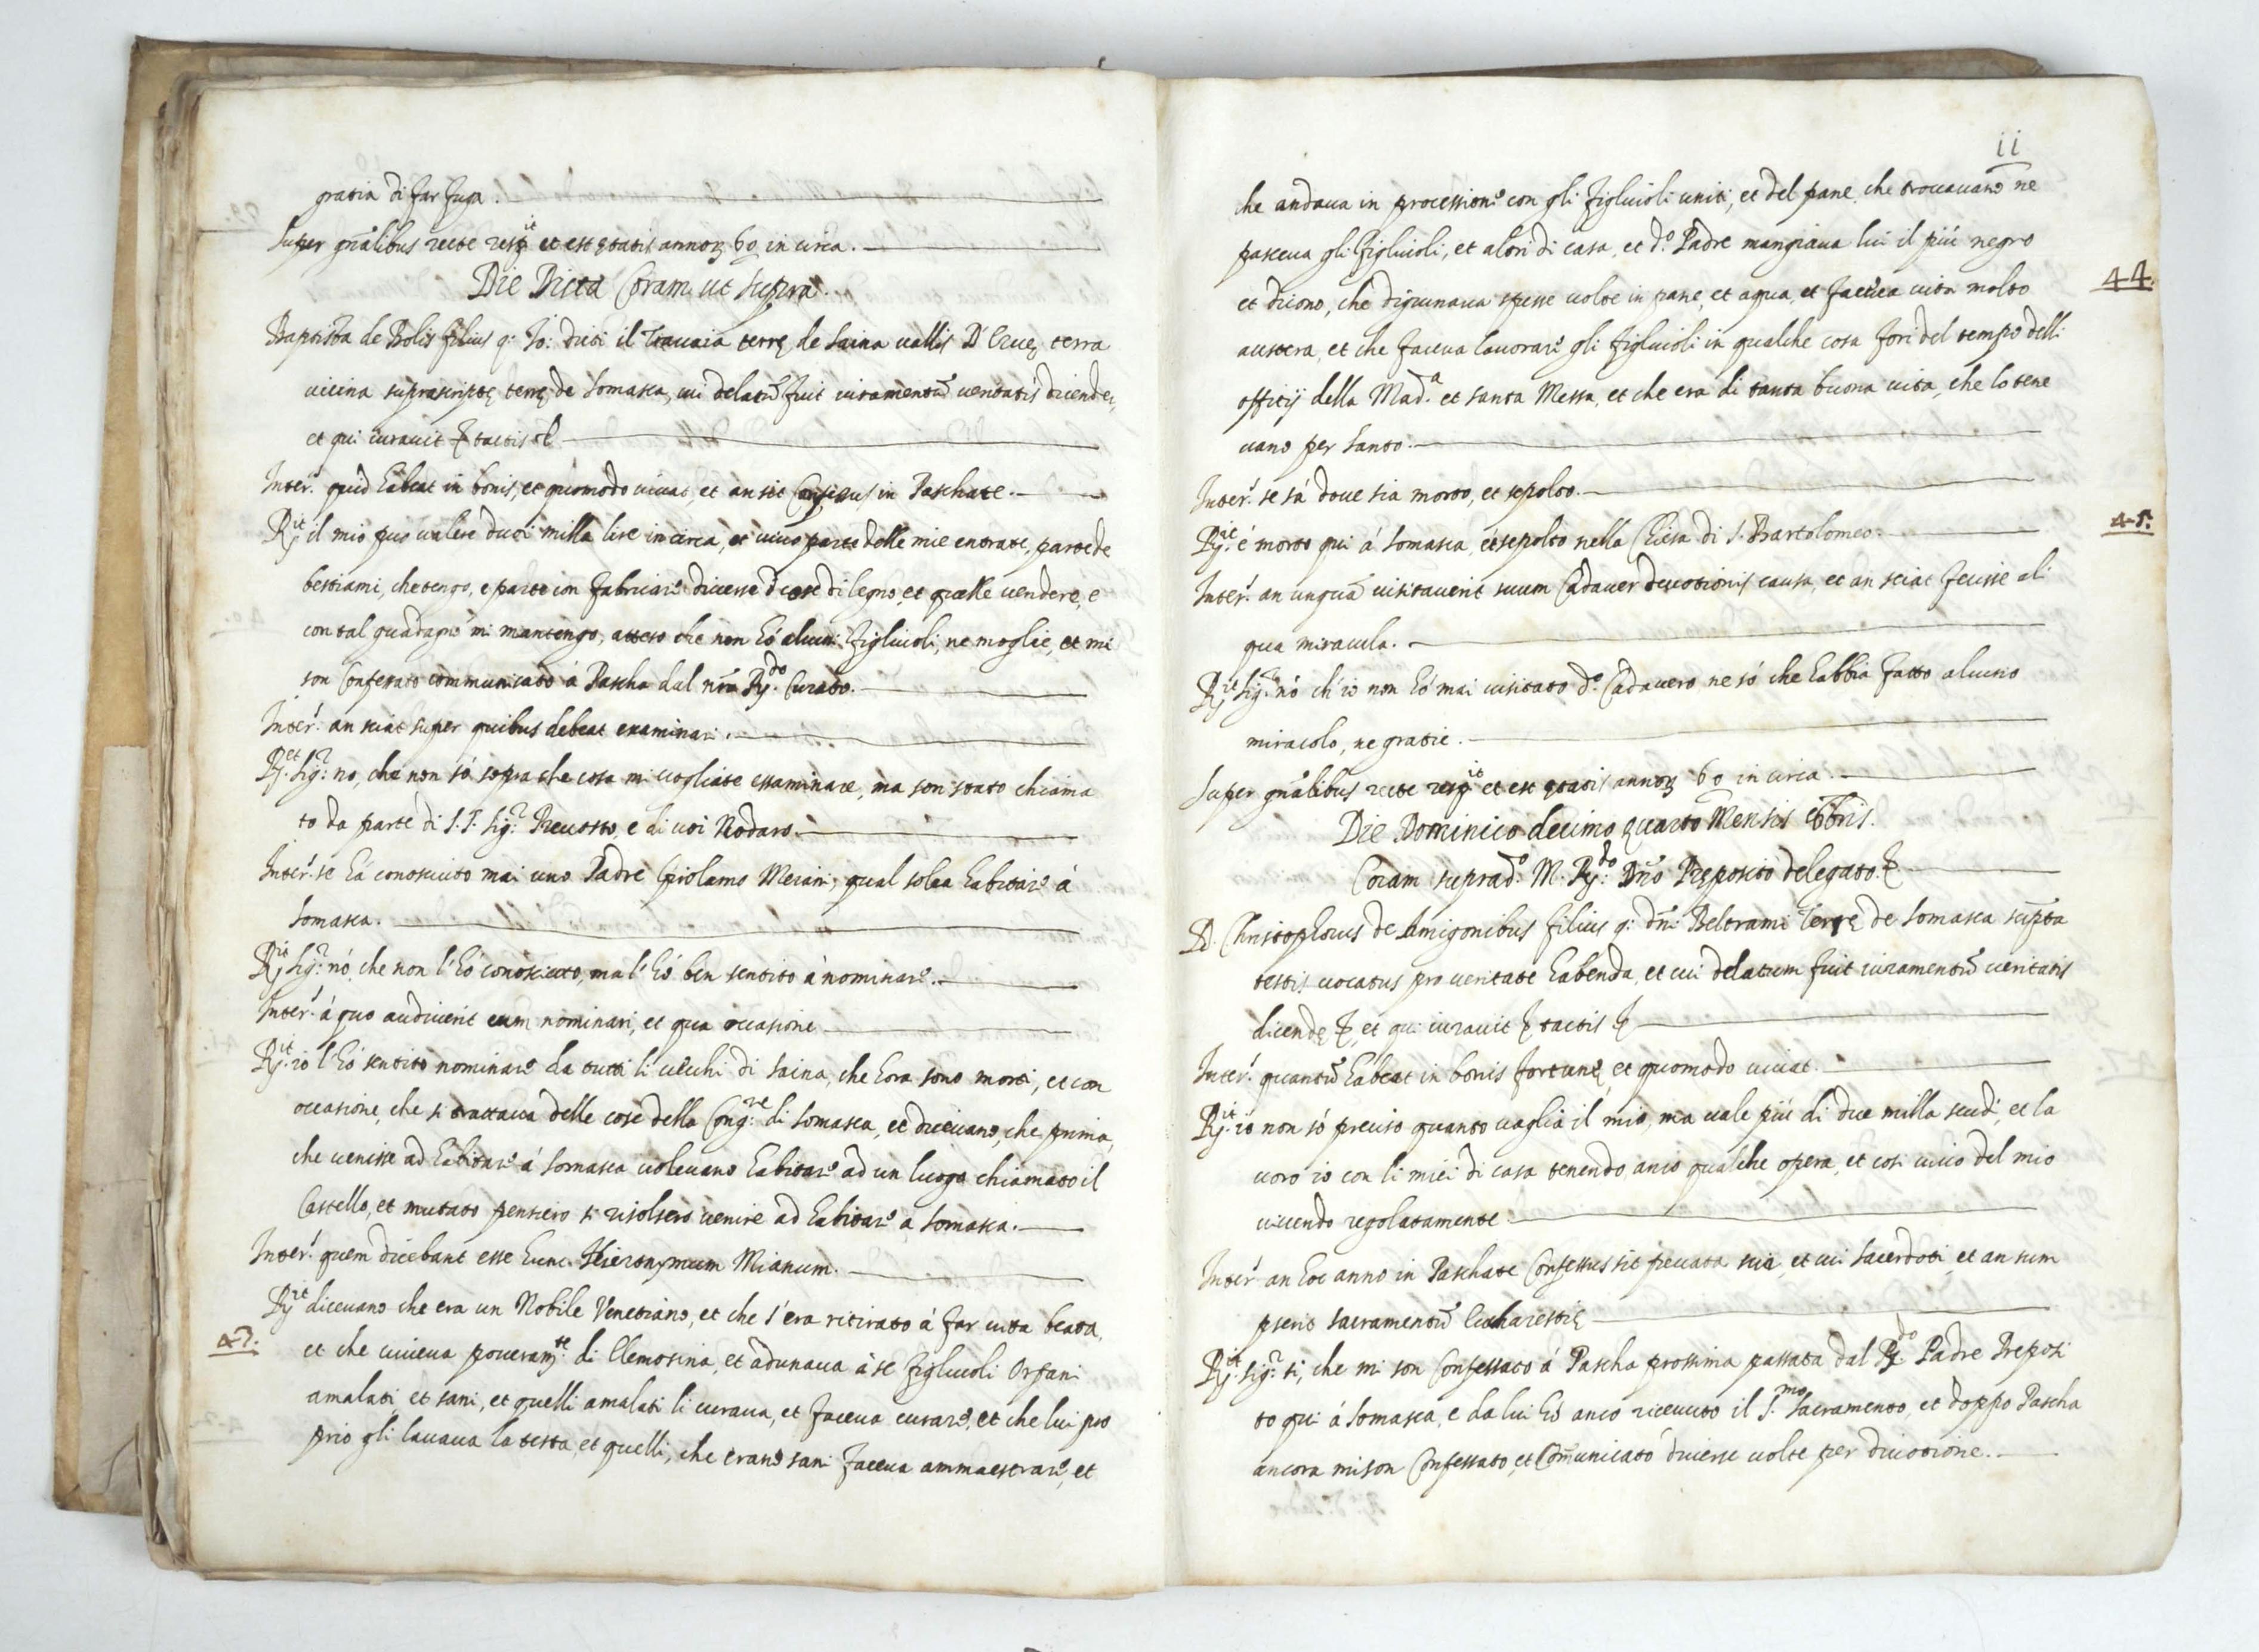 gratia di far fuga.
Super gñalibus recte resp.it et est ętatis annoȝ 60 in circa.
Die Dicta Coram ut supra.
Baptista de Bolis filius q: Jo: dicti il Travaia terrę de Saina vallis D' Erve, terra
vicina suprascriptę terrę de Somasca, cui delatũ fuit iuramentũ veritatis dicendę,
et qui iuravit tactis
Inter.º quid habeat in bonis, et quomodo vivat, et an sit Confessus in Paschate.
R.it il mio può valere duoi milla lire in circa, et vivo parte delle mie entrate, parte de
bestiami, che tengo, e parte con fabricare diverse cose di legno, et quelle vendere, e
con tal guadagno mi mantengo, atteso che non hó alcuni figliuoli, ne moglie, et mi
son Confessato communicato á Pascha dal nrõ R.do Curato.
Inter.º an sciat super quibus debeat examinari.
R.et Sig.r no, che non só sopra che cosa mi vogliate essaminare, ma son stato chiama
to da parte di S.S. Sig.r Prevosto, e di voi Nodaro.
Inter.º se há conosciuto mai uno Padre Girolamo Meiani, qual solea habitare á
Somasca.
R.it Sig.r nó, che non l'hó conosciuto, ma l'hó ben sentito á nominare.
Inter.º á quo audiverit eum nominari, et qua occasione
R.it io l'hó sentito nominare da tutti li vecchi di Saina, che hora sono morti, et con
occasione, che si trattava delle cose della Cong.ne di Somasca, et dicevano, che prima,
che venisse ad habitare á Somasca volevano habitare ad un luogo chiamato il
Castello, et mutato pensiero si risolsero venire ad habitare a Somasca.
Inter.º quem dicebant esse hunc Hieronymum Mianum.
R.it dicevano che era un Nobile Venetiano, et che s'era ritirato á far vita beata,
43.
et che viveva poveram.te di Elemosina, et adunava á se figliuoli Orfani
amalati et sani, et quelli amalati li curava, et faceva curare, et che lui pro
prio gli lavava la testa, et quelli, che erano sani faceva ammaestrare, et
ii
che andava in processione con gli figliuoli uniti, et del pane, che trovavano ne
pasceva gli figliuoli, et altri di casa, et d.º Padre mangiava lui il piú negro
44.
et dicono, che digiunava spesse volte in pane, et aqua, et faceva vita molto
austera, et che faceva lavorare gli figliuoli in qualche cosa fori del tempo delli
offitij della Mad.a et santa Messa, et che era di tanta buona vita, che lo tene
vano per Santo.
Inter.º se sá dove sia morto, et sepolto.
45.
R.it é morto qui á Somasca, et sepolto nella Chiesa di S. Bartolomeo.
Inter.º an unquã visitaverit suum Cadaver devotionis causa, et an sciat fecisse ali
qua miracula.
R.it Sig.r nó ch'io non hó mai visitato d.º Cadavero ne só che habbia fatto alcuno
miracolo, ne gratie.
Super gñalibus recte resp.it et est ętatis annoȝ 60 in circa.
Die Dominico decimo quarto Mensis
Coram suprad.º M. R.do Dnõ Pręposito delegato
D. Christophorus de Amigonibus filius q: dñi Beltrami terrę de Somasca
testis vocatus pro veritate habenda, et cui delatum fuit iuramentũ veritatis
dicendę et qui iuravit tactis
Inter.º quantũ habeat in bonis fortunę, et quomodo vivat.
R.it io non só preciso quanto vaglia il mio, ma vale piú di due milla scudi, et la
voro io con li miei di casa tenendo anco qualche opera, et cosi vivo del mio
vivendo regolatamente
Inter.º an hoc anno in Paschate Confessus sit peccata sua, et cui Sacerdoti, et an sum
pserit Sacramentũ Eucharestię
R.it Sig.r si, che mi son Confessato á Pascha prossima passata dal R.do Padre Preposi
to qui á Somasca, e da lui hó anco ricevuto il S.mo Sacramento, et doppo Pascha
ancora mi son Confessato, et Com̃unicato diverse volte per divotione.